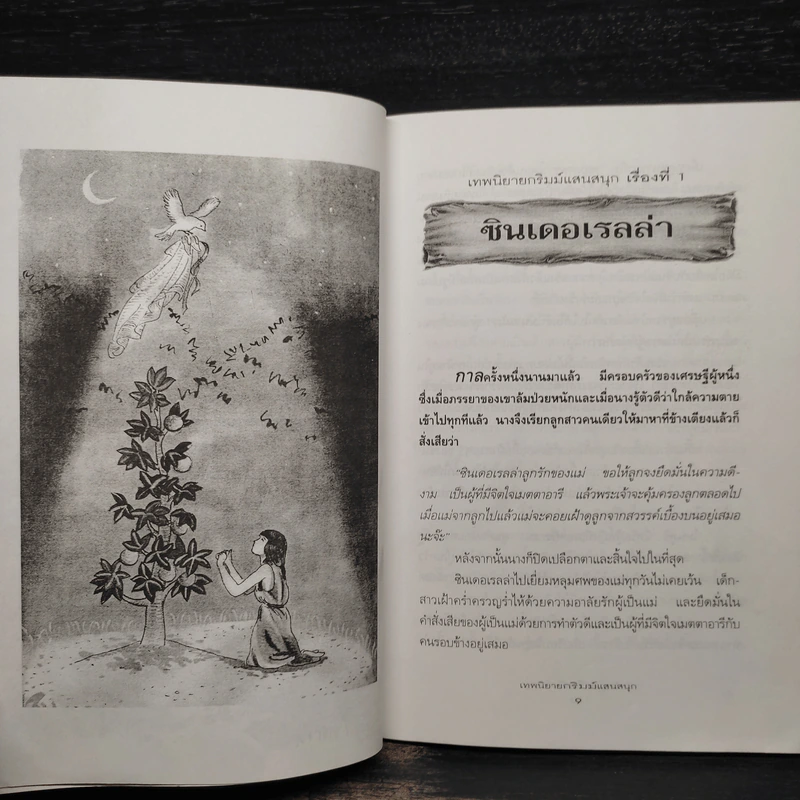 เทพนิยายกริมม์แสนสนุก เรื่องที่ 1
ซินเดอเรลล่า
กาลครั้งหนึ่งนานมาแล้ว มีครอบครัวของเศรษฐีผู้หนึ่ง
ซึ่งเมื่อภรรยาของเขาล้มป่วยหนักและเมื่อนางรู้ตัวดีว่าใกล้ความตาย
เข้าไปทุกทีแล้ว นางจึงเรียกลูกสาวคนเดียวให้มาหาที่ข้างเตียงแล้วก็
สั่งเสียว่า
"ซินเดอเรลล่าลูกรักของแม่ ขอให้ลูกจงยึดมั่นในความดี-
งาม เป็นผู้ที่มีจิตใจเมตตาอารี แล้วพระเจ้าจะคุ้มครองลูกตลอดไป
เมื่อแม่จากลูกไปแล้วแม่จะคอยเฝ้าดูลูกจากสวรรค์เบื้องบนอยู่เสมอ
นะจ๊ะ"
หลังจากนั้นนางก็ปิดเปลือกตาและสิ้นใจไปในที่สุด
ซินเดอเรลล่าไปเยี่ยมหลุมศพของแม่ทุกวันไม่เคยเว้น เด็ก-
สาวเฝ้าคร่ำครวญร่ำไห้ด้วยความอาลัยรักผู้เป็นแม่ และยึดมั่นใน
คำสั่งเสียของผู้เป็นแม่ด้วยการทำตัวดีและเป็นผู้ที่มีจิตใจเมตตาอารีกับ
คนรอบข้างอยู่เสมอ
เทพนิยายกริมม์แสนสนุก
9